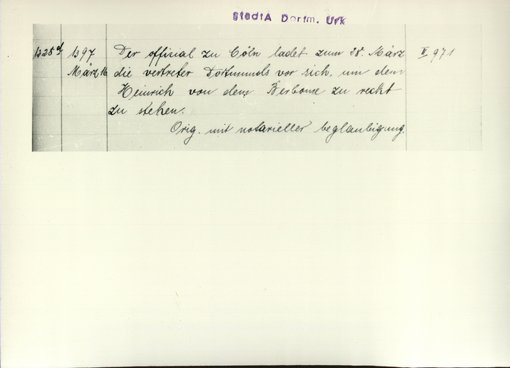 StadtA Dortm. Urk
1328d 1397 Der official zu Cöln ladet zum 28. März II 971
März 16 die vertreter Dortmunds vor sich, um dem
Heinrich von dem Berbome zu recht
zu stehen.
Orig. mit notarieller beglaubigung.